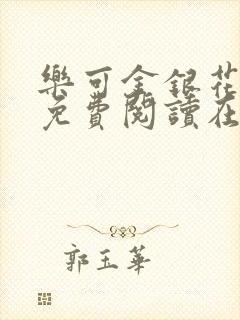 樂可金銀花
免費閱讀在
郭玉華